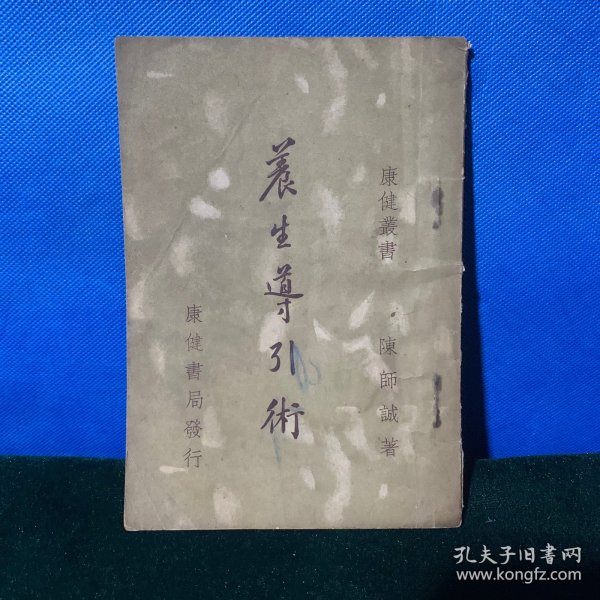 康健叢書 · 陳師誠著
養生導引術
康健書局發行
孔夫子旧書网
www.kongfz.com